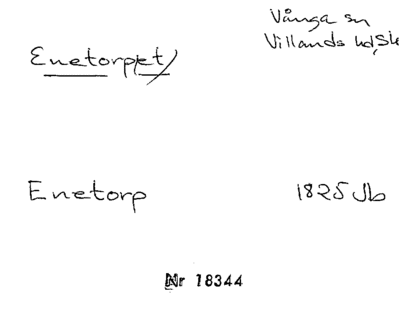 Vånga sn
Villands hd, Sk
Enetorpet
Enetorp 1825 Jb
Nr 18344